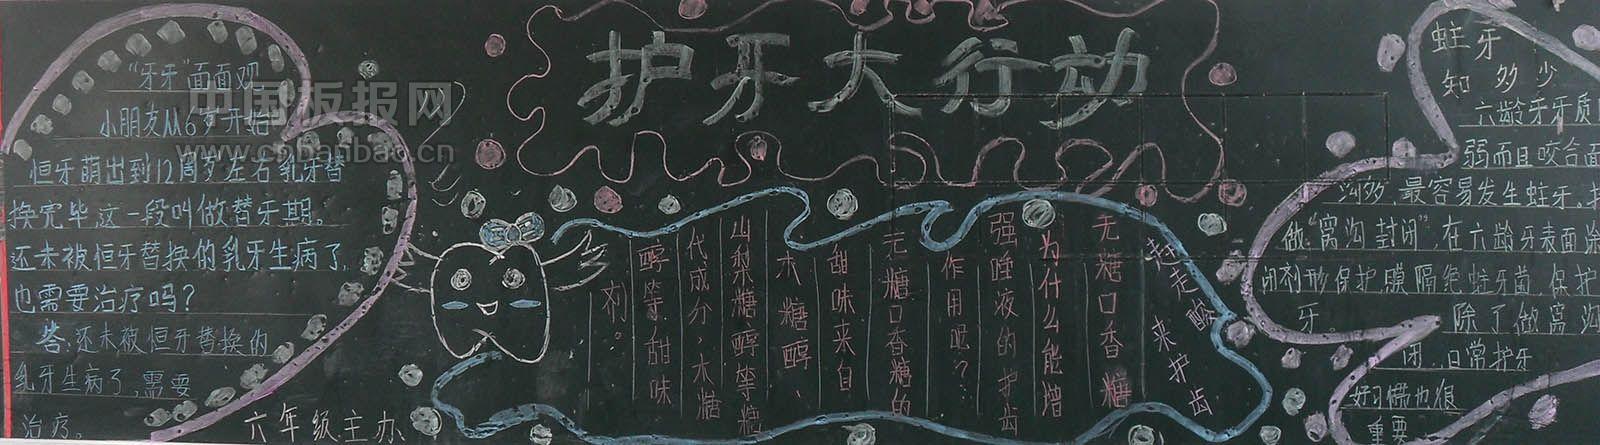 护牙大行动
“牙牙”面面观
小朋友从6岁开始
恒牙萌出到12周岁左右乳牙替
换完毕这一段叫做替牙期。
还未被恒牙替换的乳牙生病了,
也需要治疗吗?
答:还未被恒牙替换的
乳牙生病了,需要
治疗。
六年级主办
赶走酸来护齿
无糖口香糖
为什么能增
强唾液的护齿
作用呢?
无糖口香糖的
甜味来自
木糖醇、
山梨糖醇等糖
代成分,木糖
醇等甜味
剂。
蛀牙
知多少
六龄牙牙质
弱而且咬合面
沟多,最容易发生蛀牙。
做“窝沟封闭”,在六龄牙表面涂
闭剂形保护膜隔绝蛀牙菌,保护
牙。
除了做窝沟
闭,日常护牙
好习惯也很
重要
中国板报网
www.cnbanbao.cn